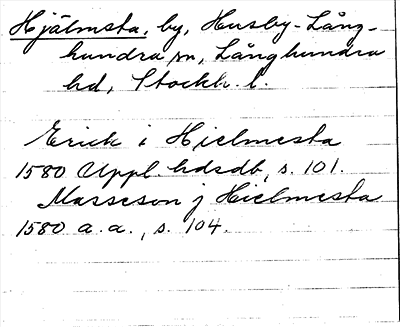 Hjälmsta, by, Husby-Lång-
hundra sn, Långhundra
hd, Stockh. l.
Erick i Hielmesta
1580 Uppl. hdsdb, s. 101.
Marsseson j Hielmesta
1580 a. a., s. 104.